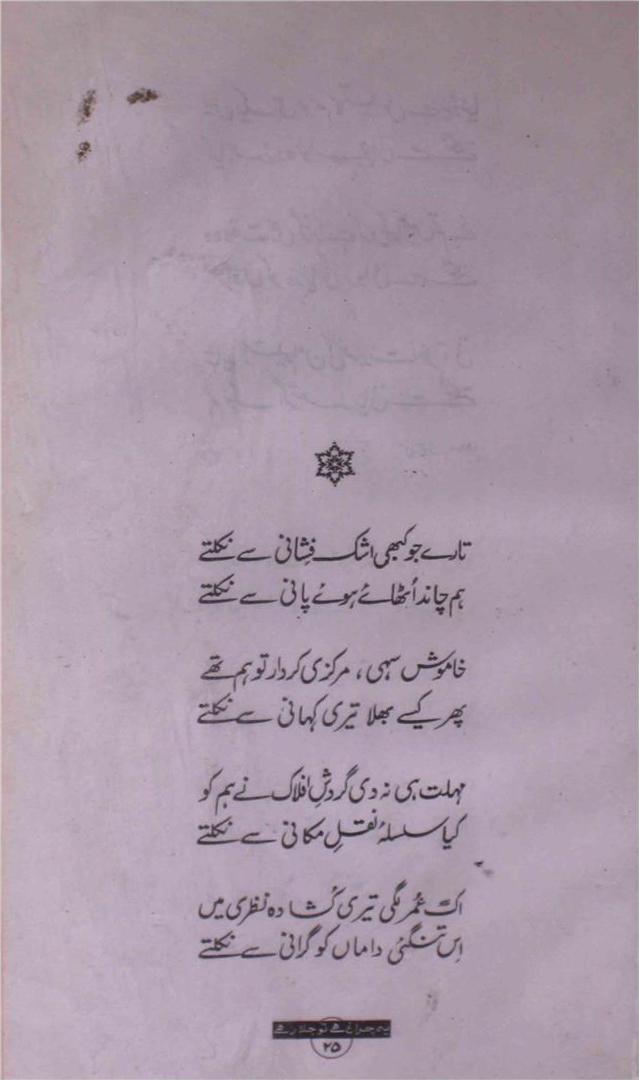 تارے جو کبھی اشک فِشانی سے نکلتے
ہم چاند اُٹھائے ہوئے پانی سے نکلتے
خاموش سہی، مرکزی کردار تو ہم تھے
پھر کیسے بھلا تیری کہانی سے نکلتے
مہلت ہی نہ دی گردشِ افلاک نے ہم کو
کیا سلسلۂ نقلِ مکانی سے نکلتے
اک عُمر لگی تیری کُشادہ نظری میں
اِس تنگئی داماں کو گرانی سے نکلتے
یہ چراغ ہے تو جلا رہے
۲۵